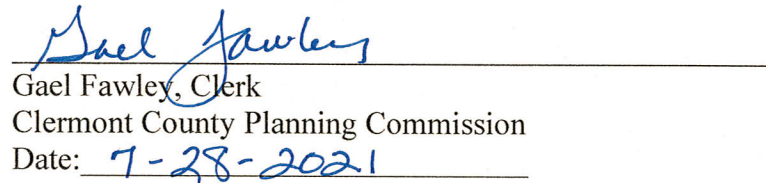 Gael Fawley
Gael Fawley, Clerk
Clermont County Planning Commission
Date: 7-28-2021